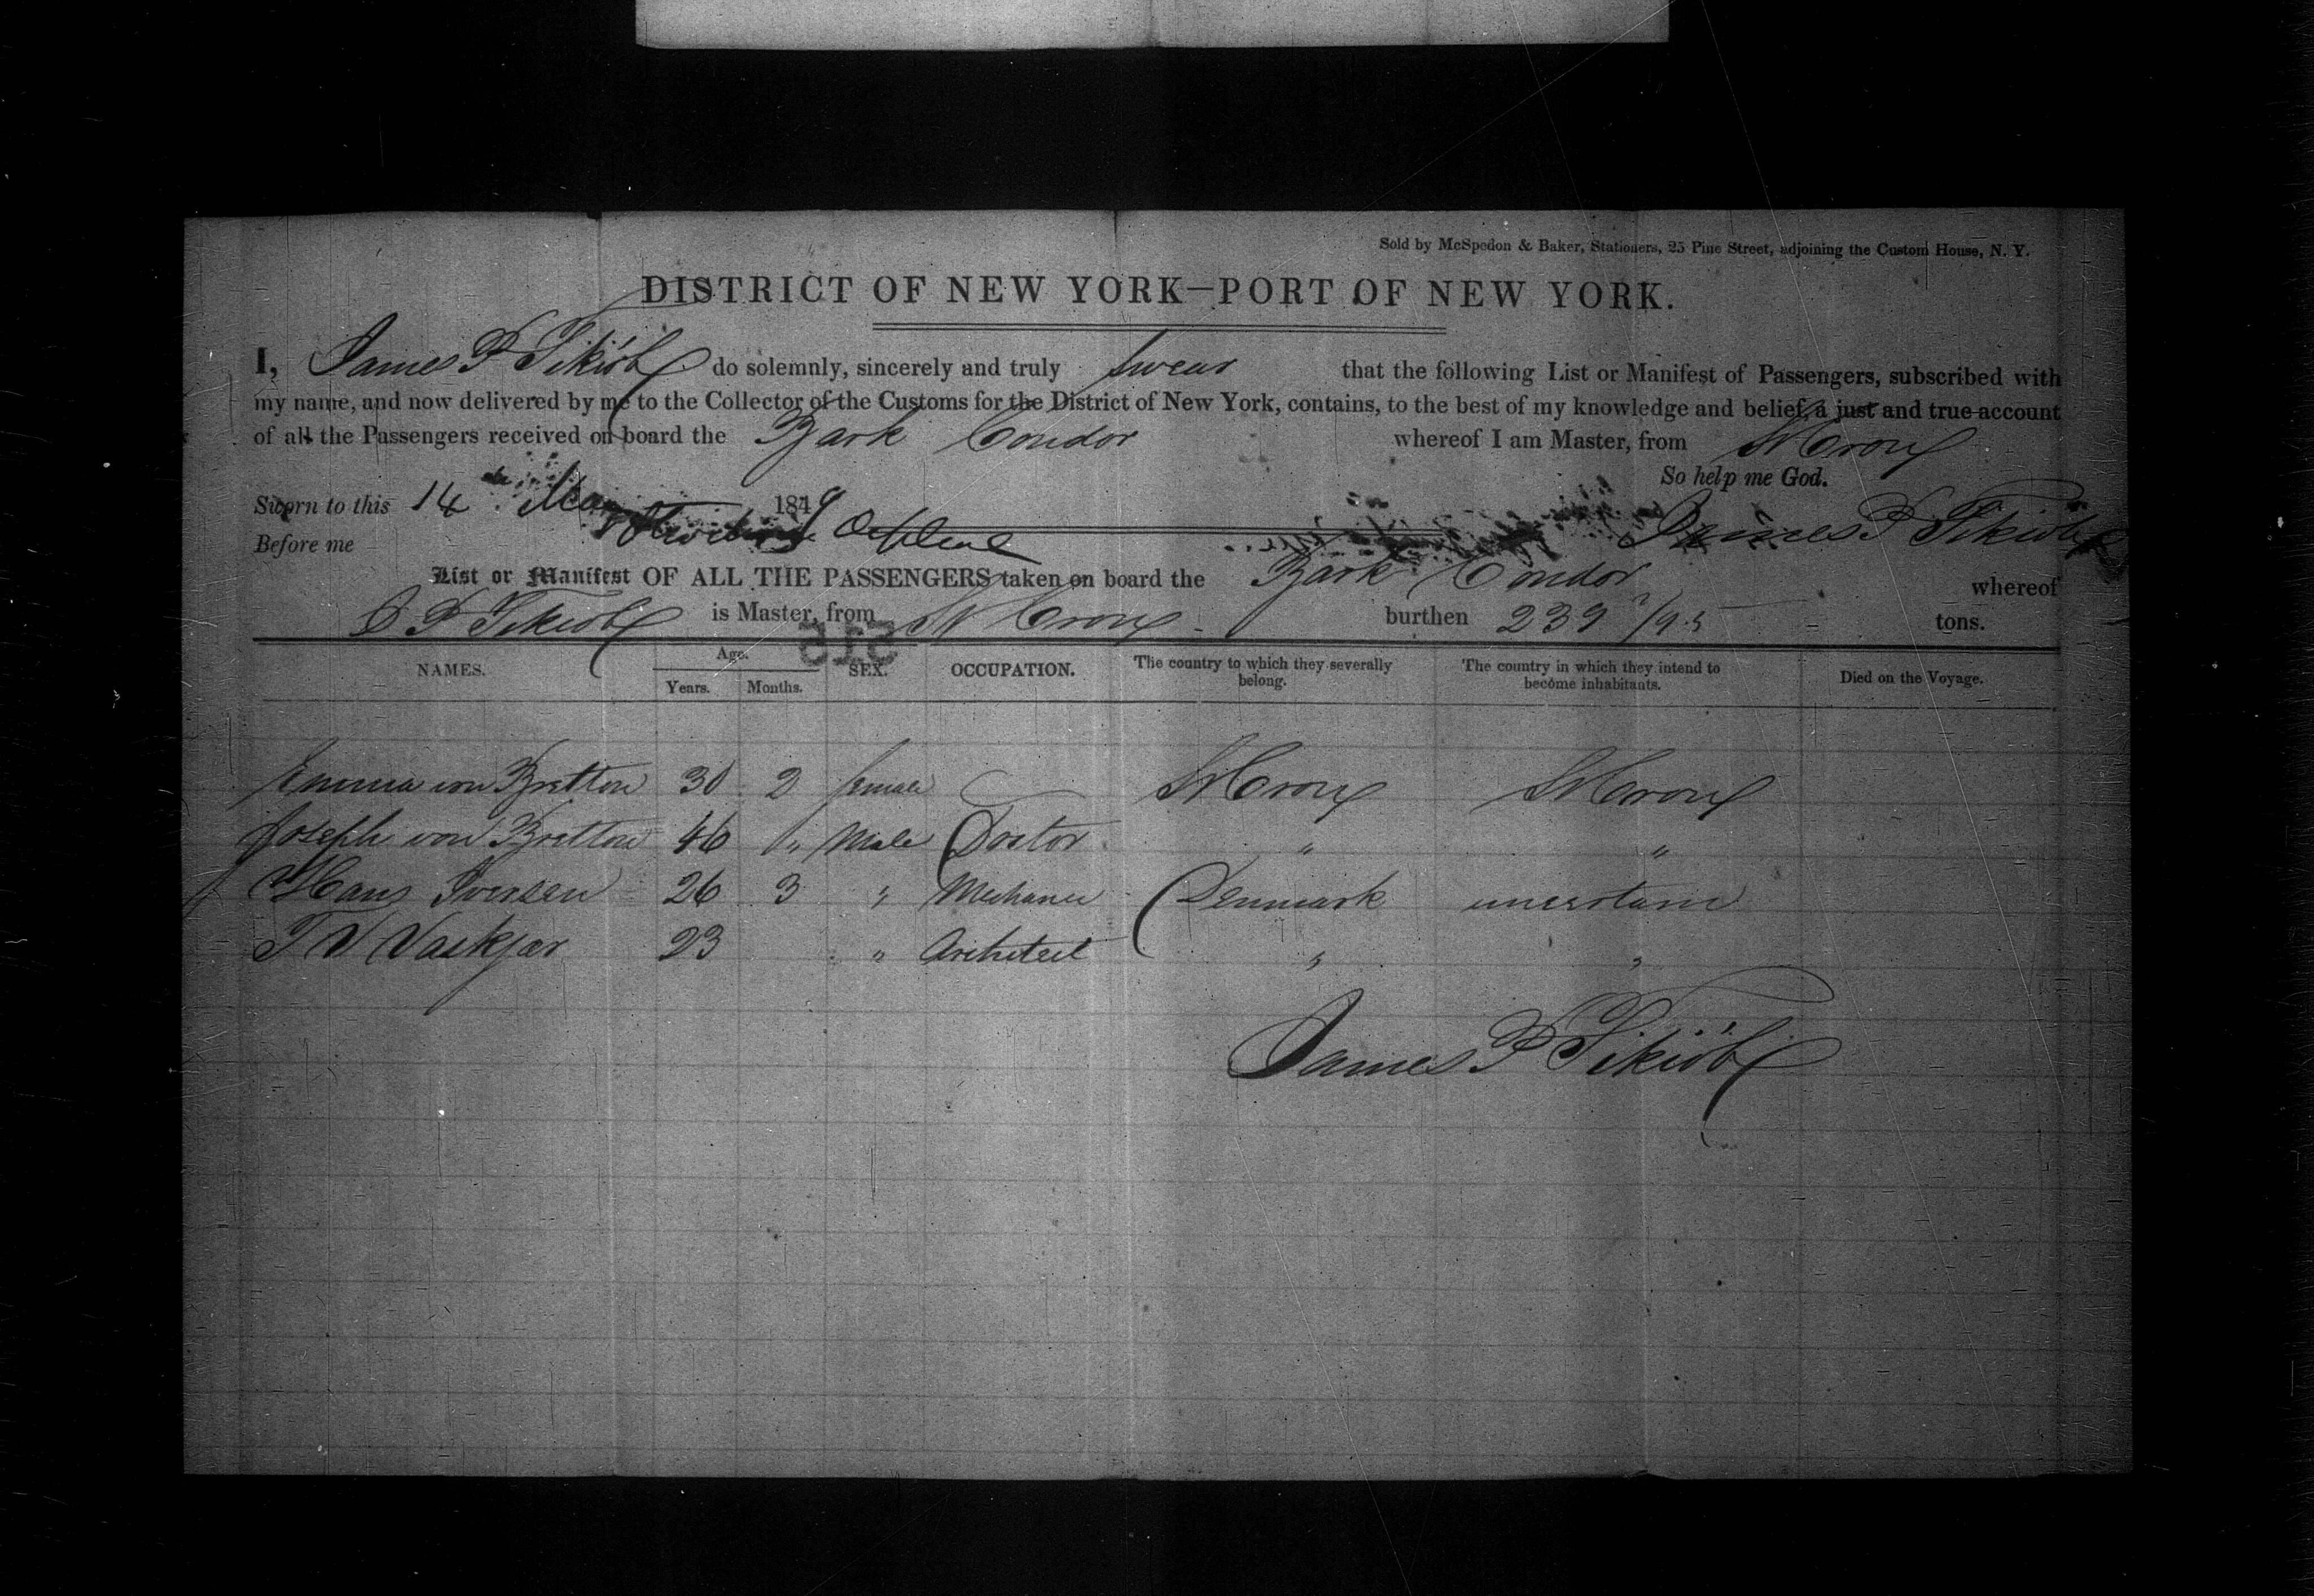 Sold by McSpedon & Baker, Stationers, 25 Pine Street, adjoining the Custom House, N. Y.
DISTRICT OF NEW YORK—PORT OF NEW YORK.
I, James P do solemnly, sincerely and truly swear that the following List or Manifest of Passengers, subscribed with
my name, and now delivered by me to the Collector of the Customs for the District of New York, contains, to the best of my knowledge and belief, a just and true account
of all the Passengers received on board the Bark Condor whereof I am Master, from St Croix
So help me God.
Sworn to this 14 1849
Before me James P
List or Manifest OF ALL THE PASSENGERS taken on board the Bark Condor whereof
is Master, from St Croix burthen 239 /95 tons.
NAMES. Age. SEX. OCCUPATION. The country to which they severally belong. The country in which they intend to become inhabitants. Died on the Voyage.
Years. Months.
Emma von Bretton 30 2 female St Croix St Croix
Joseph von Bretton 46 " Male Doctor " "
Hans Iversen 26 3 " Mechanic Denmark uncertain
23 " Architect " "
James P